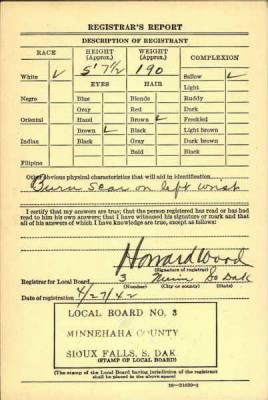 REGISTRAR'S REPORT
DESCRIPTION OF REGISTRANT
RACE HEIGHT (Approx.) WEIGHT (Approx.) COMPLEXION
White ✓ 5' 7½ 190 Sallow ✓
EYES HAIR Light
Negro Blue Blonde Ruddy
Gray Red Dark
Oriental Hazel Brown ✓ Freckled
Brown ✓ Black Light brown
Indian Black Gray Dark brown
Bald Black
Filipino
Other obvious physical characteristics that will aid in identification
Burn Scar on left wrist
I certify that my answers are true; that the person registered has read or has had
read to him his own answers; that I have witnessed his signature or mark and that
all of his answers of which I have knowledge are true, except as follows:
Howard Wood
(Signature of registrar)
Registrar for Local Board 3 So Dak
(Number) (City or county) (State)
Date of registration 4/27/42
LOCAL BOARD NO. 3
MINNEHAHA COUNTY
SIOUX FALLS, S. DAK
(STAMP OF LOCAL BOARD)
(The stamp of the Local Board having jurisdiction of the registrant
shall be placed in the above space)